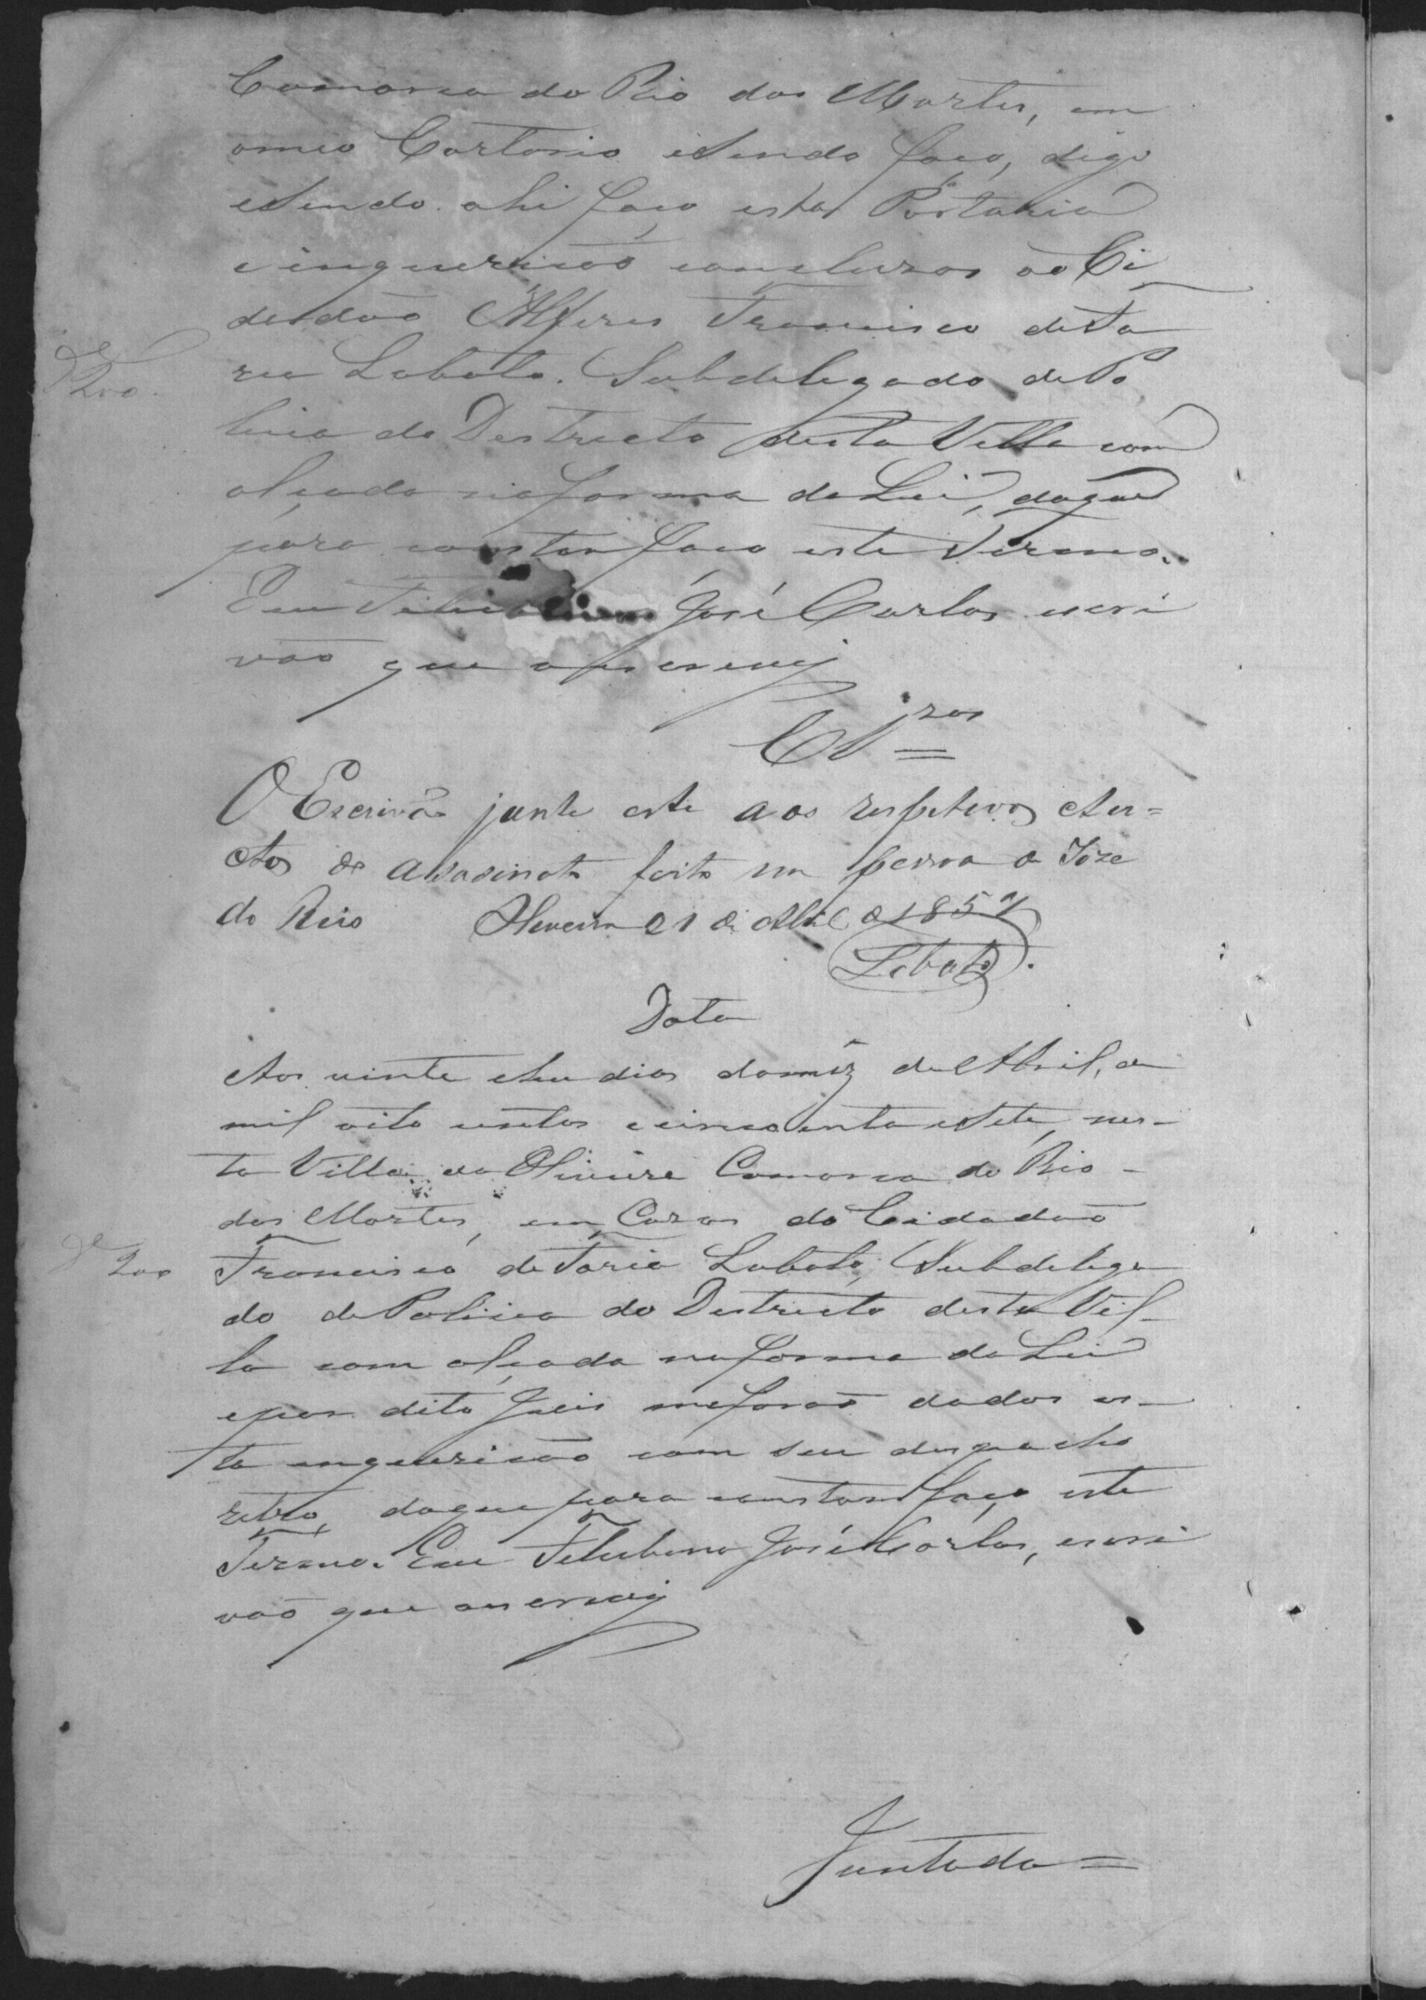 Comarca do Rio das Mortes, em
o meo Cartorio esendo faço, digo
esendo ahi faço esta Portaria
e inquerição concluzos ao Ci
dadão Alferes Francisco de Fa
ria Lobato. Subdelegado de Po
licia do Destricto desta Villa com
alçada na forma da Lei, do que
para constar faço este Termo.
Eu José Carlos escri
vão que o escrevij
Clzos =
O Escrivão junte este aos respetivos Au=
Ctos de assasinato feito na pessoa de Joze
do Reis Oliveira 21 de Abril de 1857
Lobato.
Data
Aos vinte e hu dias do mêz de Abril, de
mil oito centos e cincoenta e sete, nes-
ta Villa da Oliveira Comarca do Rio-
das Mortes, em Cazas do Cidadão
Francisco de Faria Lobato, Subdelega
do de Policia do Destricto desta Vil-
la com alçada na forma da Lei
e por dito Juis me forão dados es-
ta inquerição com seu despacho
retro, do que para constar faço este
Termo. Eu José Carlos, escri
vão que o escrevij
Juntada =
200
200